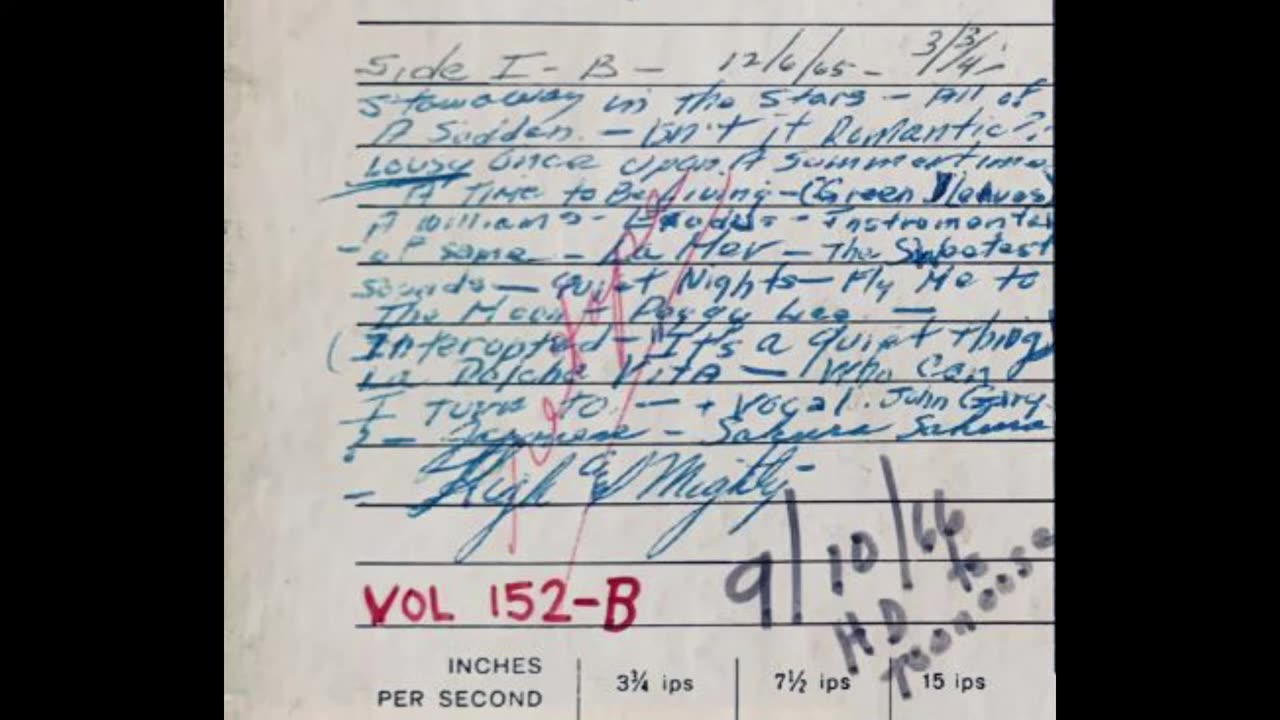 Side I - B - 12/6/65 - 3 3/4
Stowaway in the Stars - All of
A Sodden - Isn't it Romantic?
Lousy Once Upon A Summertime
A Time to Be Living - (Green Sleeves)
A Williams - Exodus - Instromental
- of same - La Mer - The Sweetest
Sounds - Quiet Nights - Fly Me to
The Moon + Peggy Lee -
(Interopted - "It's a quiet thing)
La Dolche Vita - Who Can
I Turn to - + Vocal. John Gary
Japanese - Sakura Sakura
- High & Mighty -
9/10/66
VOL 152-B
HD to
INCHES PER SECOND 3¾ ips 7½ ips 15 ips